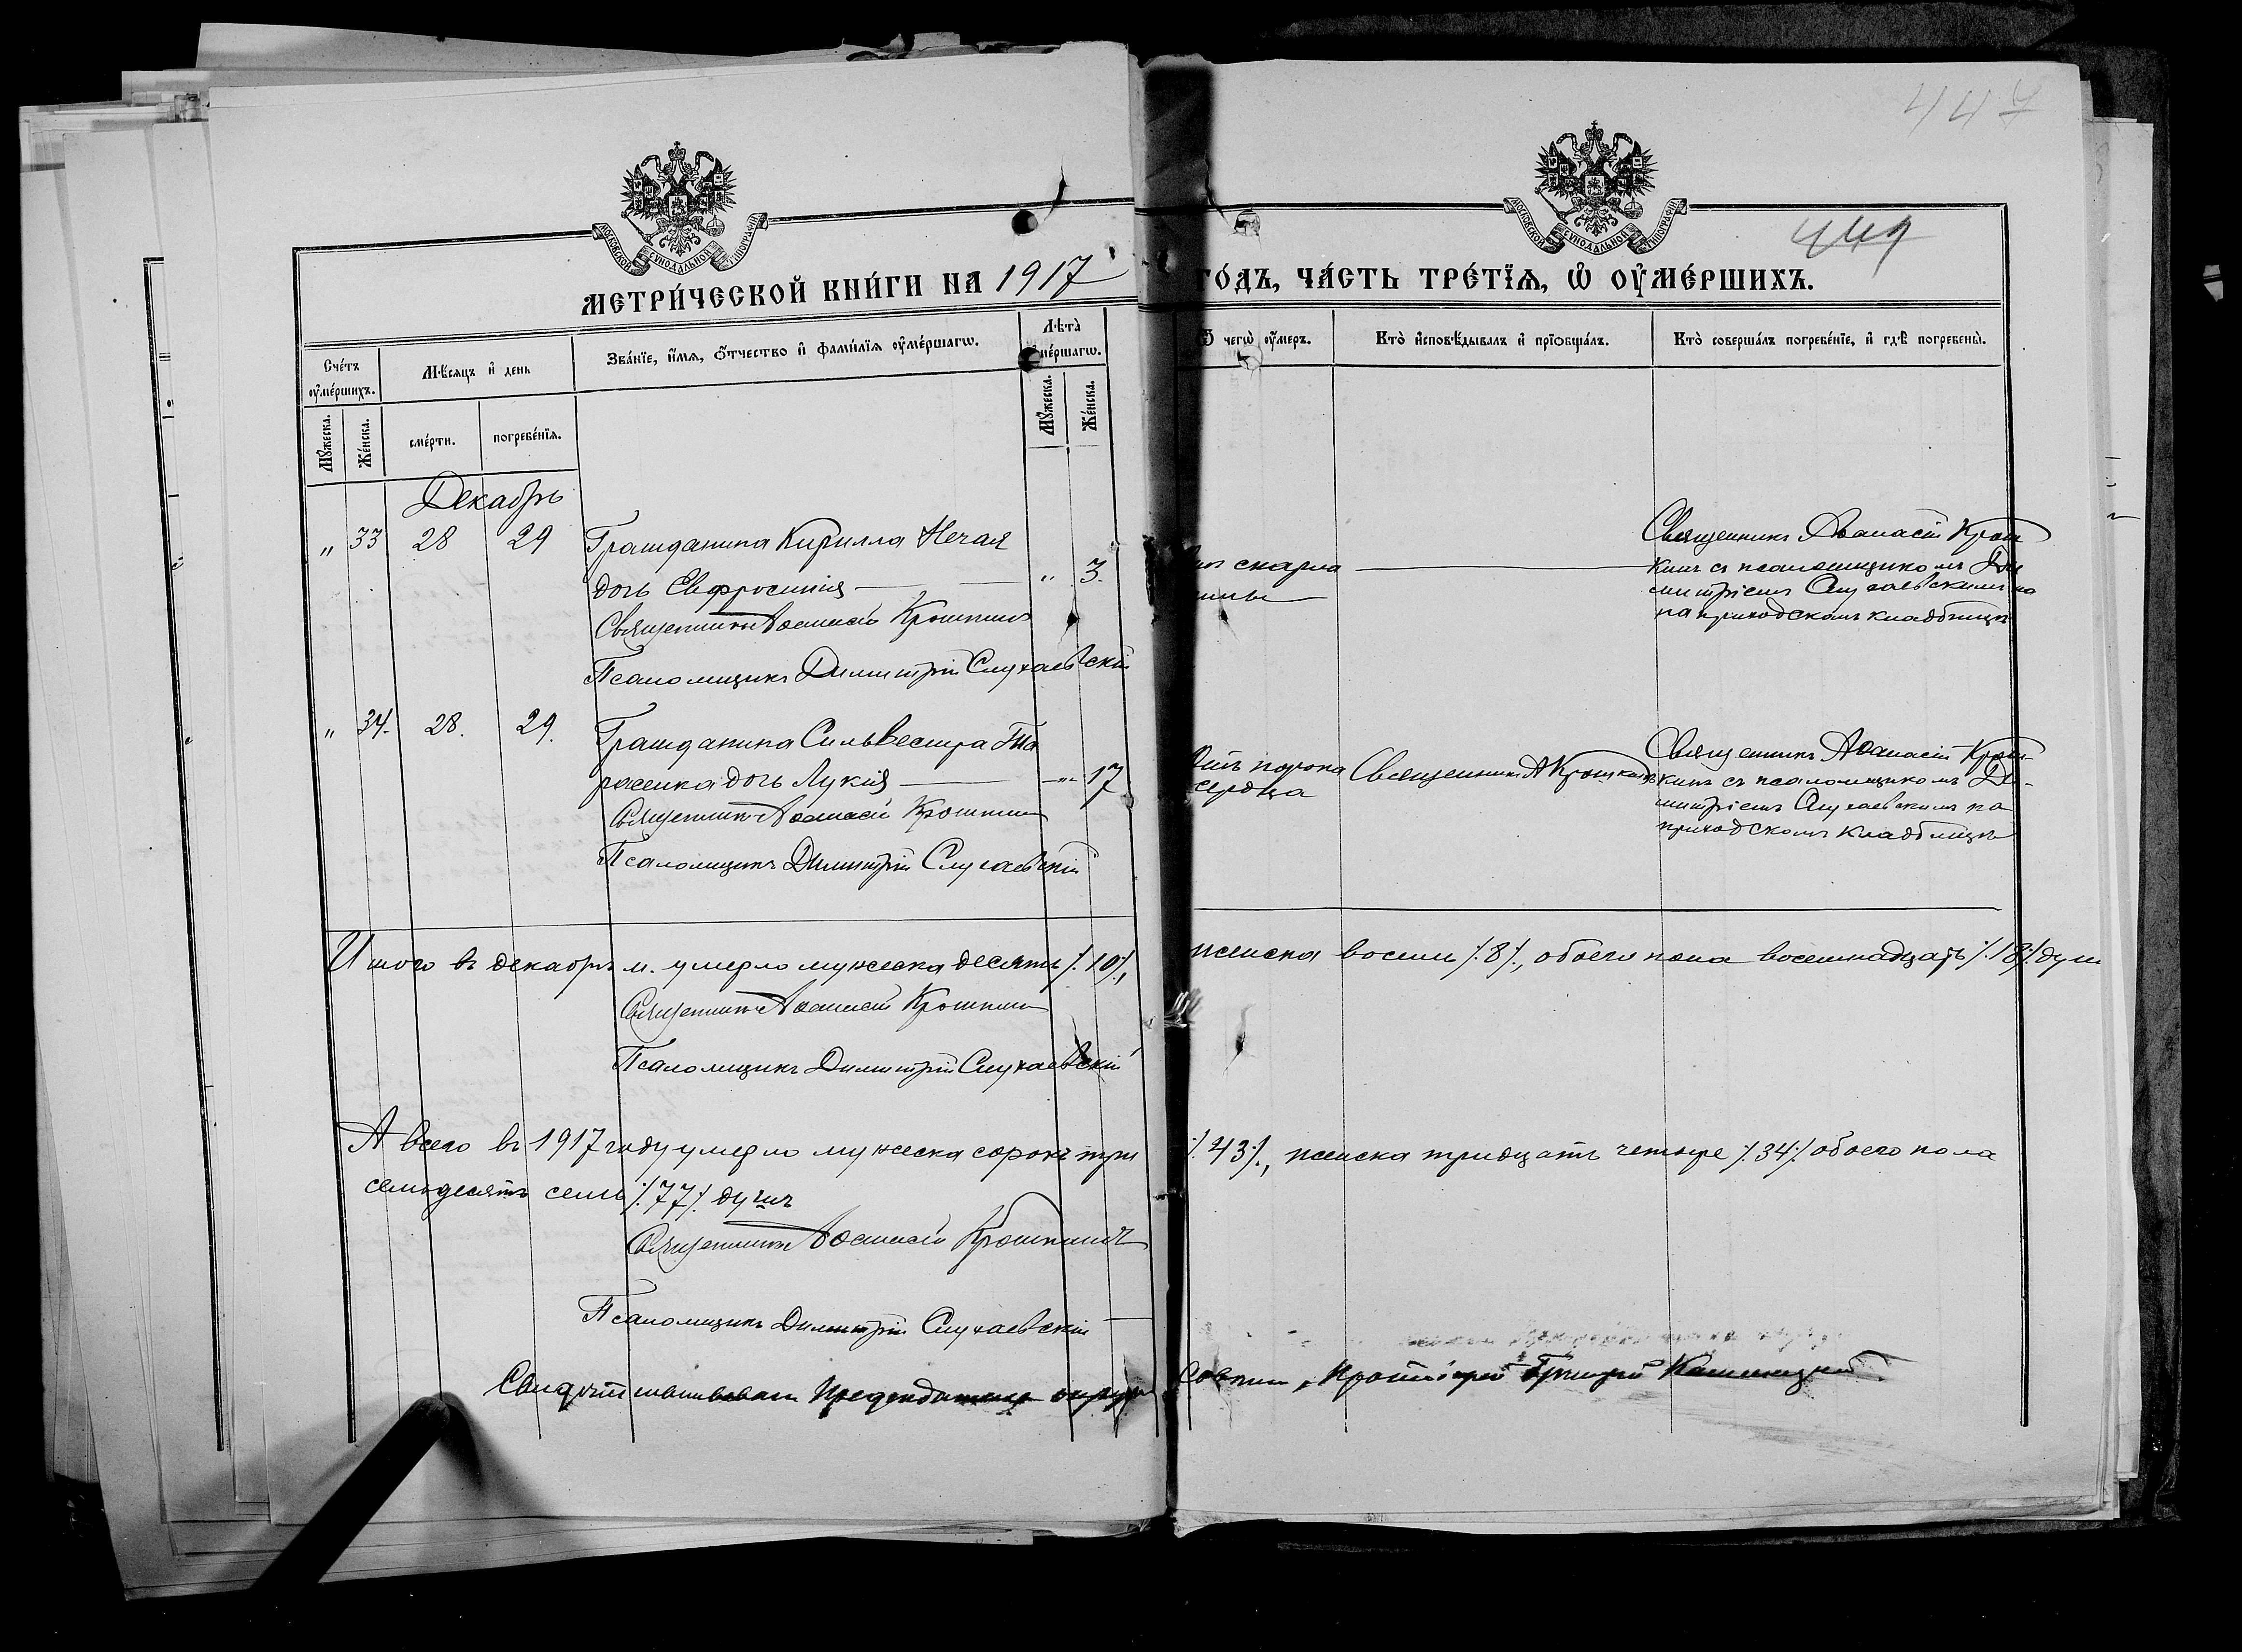 447
449
МОСКОВСКОЙ СУНОДАЛЬНОЙ ТИПОГРАФІИ
МОСКОВСКОЙ СУНОДАЛЬНОЙ ТИПОГРАФІИ
МЕТРИ́ЧЕСКОЙ КНИ́ГИ НА 1917 ГО́ДЪ, ЧА́СТЬ ТРЕ́ТЇѦ, Ѽ ОУ҆МЕ́РШИХЪ.
Сче́тъ оу҆ме́ршихъ.
Мꙋ́жеска.
Же́нска.
Мѣ́сяцъ и҆ день
сме́рти.
погребе́нїѧ.
Зва́нїе, и҆́мѧ, ѻ҆́тчество и҆ фами́лїѧ оу҆ме́ршагѡ.
Лѣта̀ оу҆ме́ршагѡ.
Мꙋ́жеска.
Же́нска.
Ѿ чегѡ̀ оу҆́меръ.
Кто̀ и҆сповѣ́дывалъ и҆ прїѻбща́лъ.
Кто̀ соверша́лъ погребе́нїе, и҆ гдѣ̀ погребены̀.
Декабрь
" 33 28 29 Гражданина Кирилла Нечая
дочь Евфросинія — " 3.
Священникъ Аѳанасій Крошкинъ
Псаломщикъ Димитрій Случаевскій
скарла
тины
Священникъ Аѳанасій Крош
кинъ съ псаломщикомъ Ди
митріемъ Случаевскимъ на
приходскомъ кладбищѣ
" 34. 28. 29. Гражданина Сильвестра Та
расенка дочь Лукія — " 17
Священникъ Аѳанасій Крошкинъ
Псаломщикъ Димитрій Случаевскій
Отъ порока
сердца
Священникъ А Крошкинъ
Священникъ Аѳанасій Крош-
кинъ съ псаломщикомъ Ди-
митріемъ Случаевскимъ на
приходскомъ кладбищѣ
Итого въ декабрѣ м. умерло мужеска десять /.10/., женска восемь /.8/., обоего пола восемнадцать /.18/. душ
Священникъ Аѳанасій Крошкинъ
Псаломщикъ Димитрій Случаевскій
А всего въ 1917 году умерло мужеска сорокъ три /.43/., женска тридцать четыре /.34/. обоего пола
семьдесятъ семь /.77/. душъ
Священникъ Аѳанасій Крошкинъ
Псаломщикъ Димитрій Случаевскій
Свидѣтельствовалъ Предсѣдатель Протоіерей Григорій